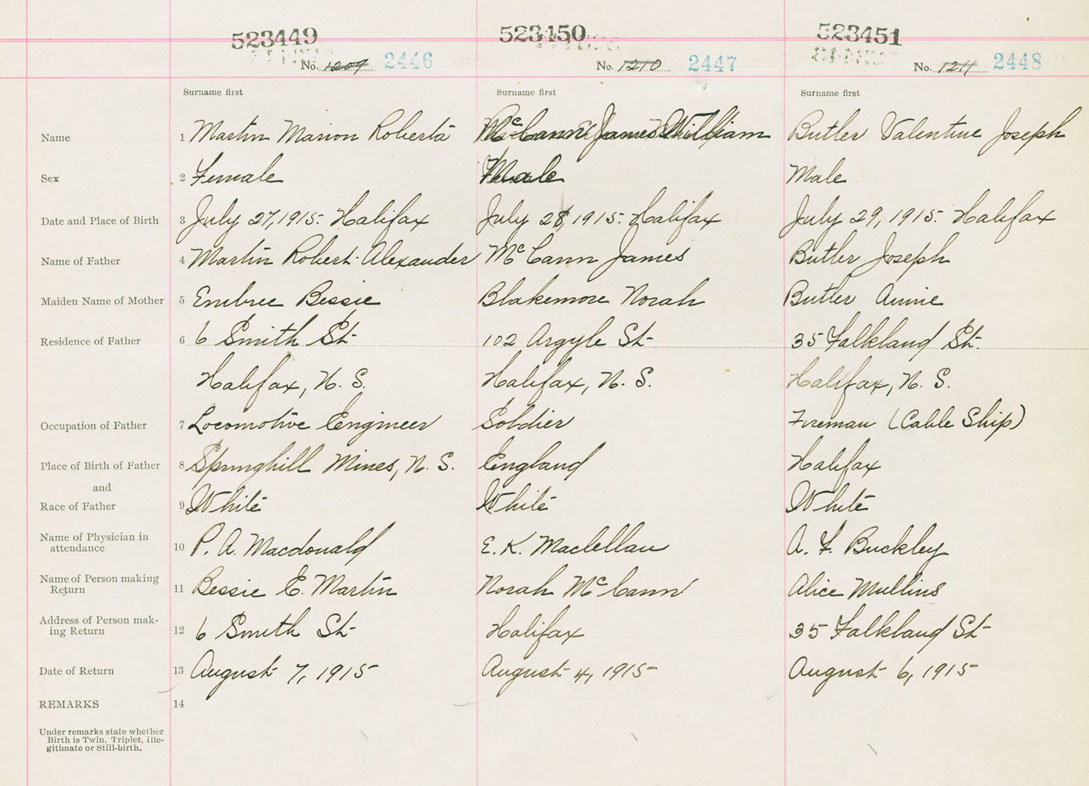 523449 523450 523451
No. 1209 2446 No. 1210 2447 No. 1211 2448
Surname first Surname first Surname first
Name 1 Martin Marion Roberta McCann James William Butler Valentine Joseph
Sex 2 Female Male Male
Date and Place of Birth 3 July 27, 1915 - Halifax July 28, 1915 - Halifax July 29, 1915 - Halifax
Name of Father 4 Martin Robert Alexander McCann James Butler Joseph
Maiden Name of Mother 5 Embree Bessie Blakemore Norah Butler Annie
Residence of Father 6 6 Smith St. 102 Argyle St. 35 Falkland St.
Halifax, N. S. Halifax, N. S. Halifax, N. S.
Occupation of Father 7 Locomotive Engineer Soldier Fireman (Cable Ship)
Place of Birth of Father 8 Springhill Mines, N. S. England Halifax
and
Race of Father 9 White White White
Name of Physician in
attendance 10 P. A. Macdonald E. K. Maclellan A. F. Buckley
Name of Person making
Return 11 Bessie E. Martin Norah McCann Alice Mullins
Address of Person mak-
ing Return 12 6 Smith St. Halifax 35 Falkland St.
Date of Return 13 August 7, 1915 August 4, 1915 August 6, 1915
REMARKS 14
Under remarks state whether
Birth is Twin, Triplet, Ille-
gitimate or Still-birth.